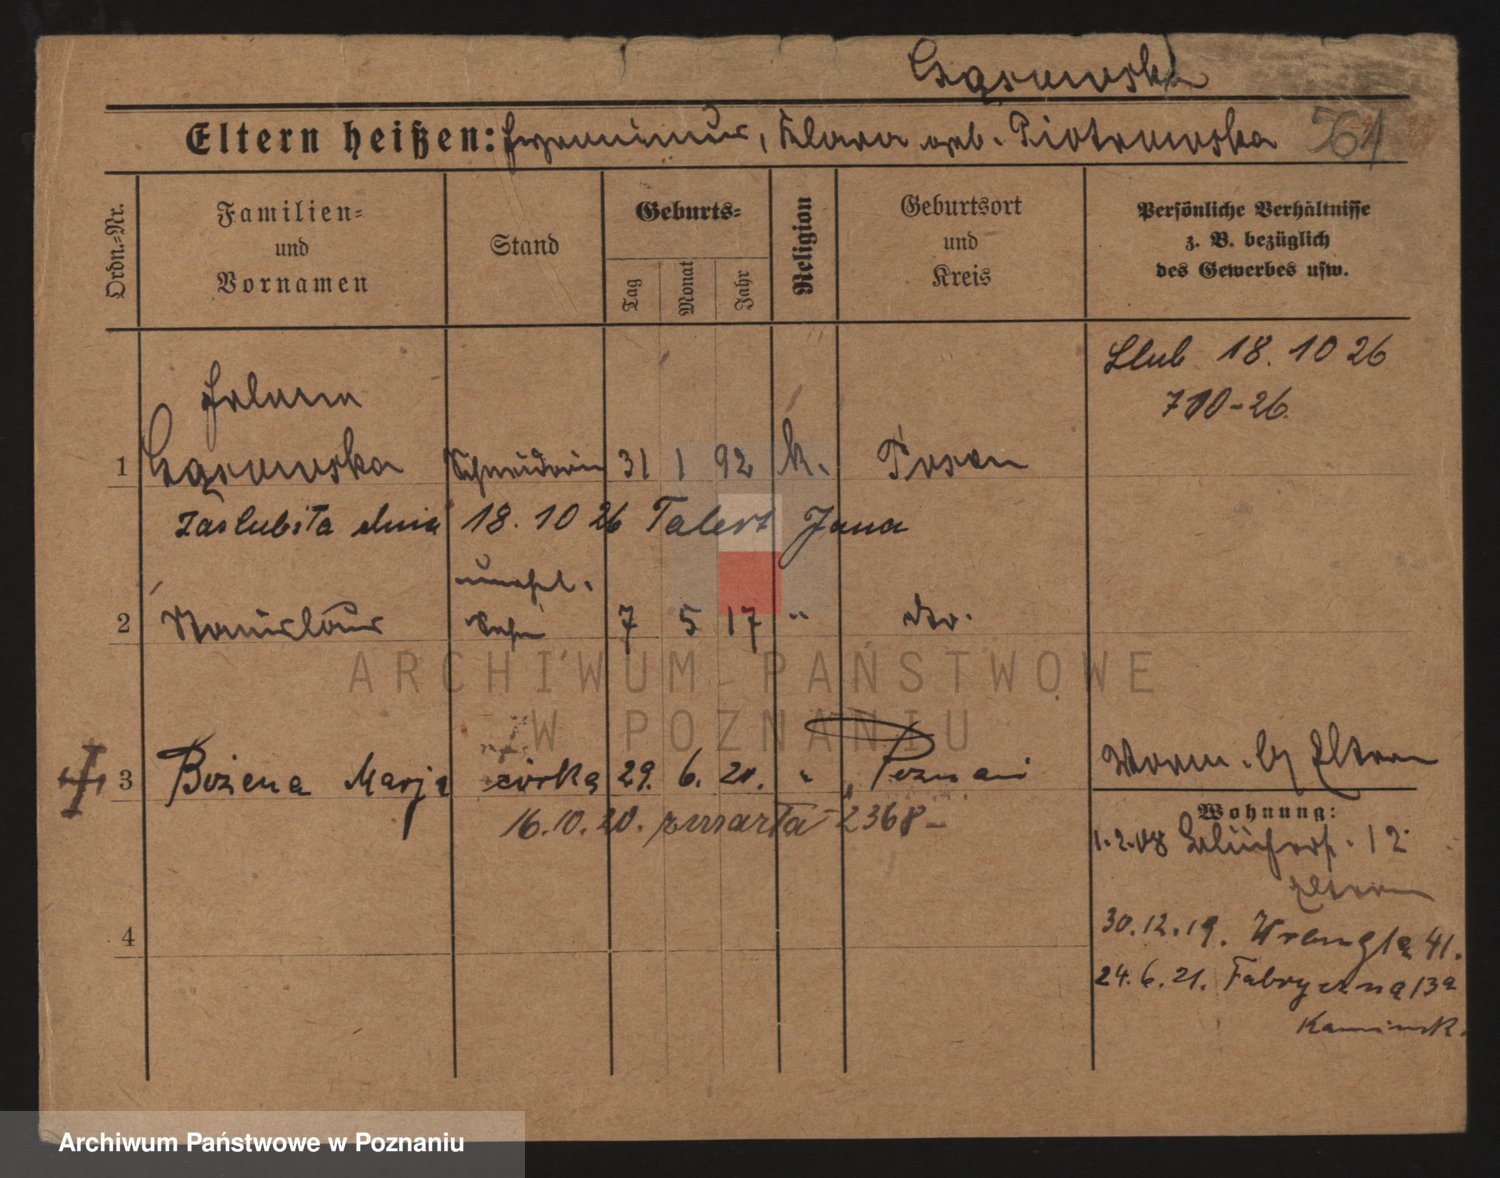 761
Eltern heißen: Hyronimus, Klara geb. Piotrowska
Ordn.=Nr.
Familien=
und
Vornamen
Stand
Geburts=
Tag
Monat
Jahr
Religion
Geburtsort
und
Kreis
Persönliche Verhältnisse
z. B. bezüglich
des Gewerbes usw.
Ślub 18. 10 26
710-26.
Helena
1 Schneiderin 31 1 92 k. Posen
zaślubiła dnia 18. 10 26 Talert Jana
unehel.
2 Stanislaus Sohn 7 5 17 " do.
3 Bożena Marja córka 29. 6. 20. " Poznań
Worm. by Eltern
16.10.20. zmarła 2368-
Wohnung:
1.2.08 Blücherst. 12
Eltern
4
30.12.19. 41.
24.6.21. Fabryczna 13a
Kaminsk.
ARCHIWUM PAŃSTWOWE
W POZNANIU
Archiwum Państwowe w Poznaniu